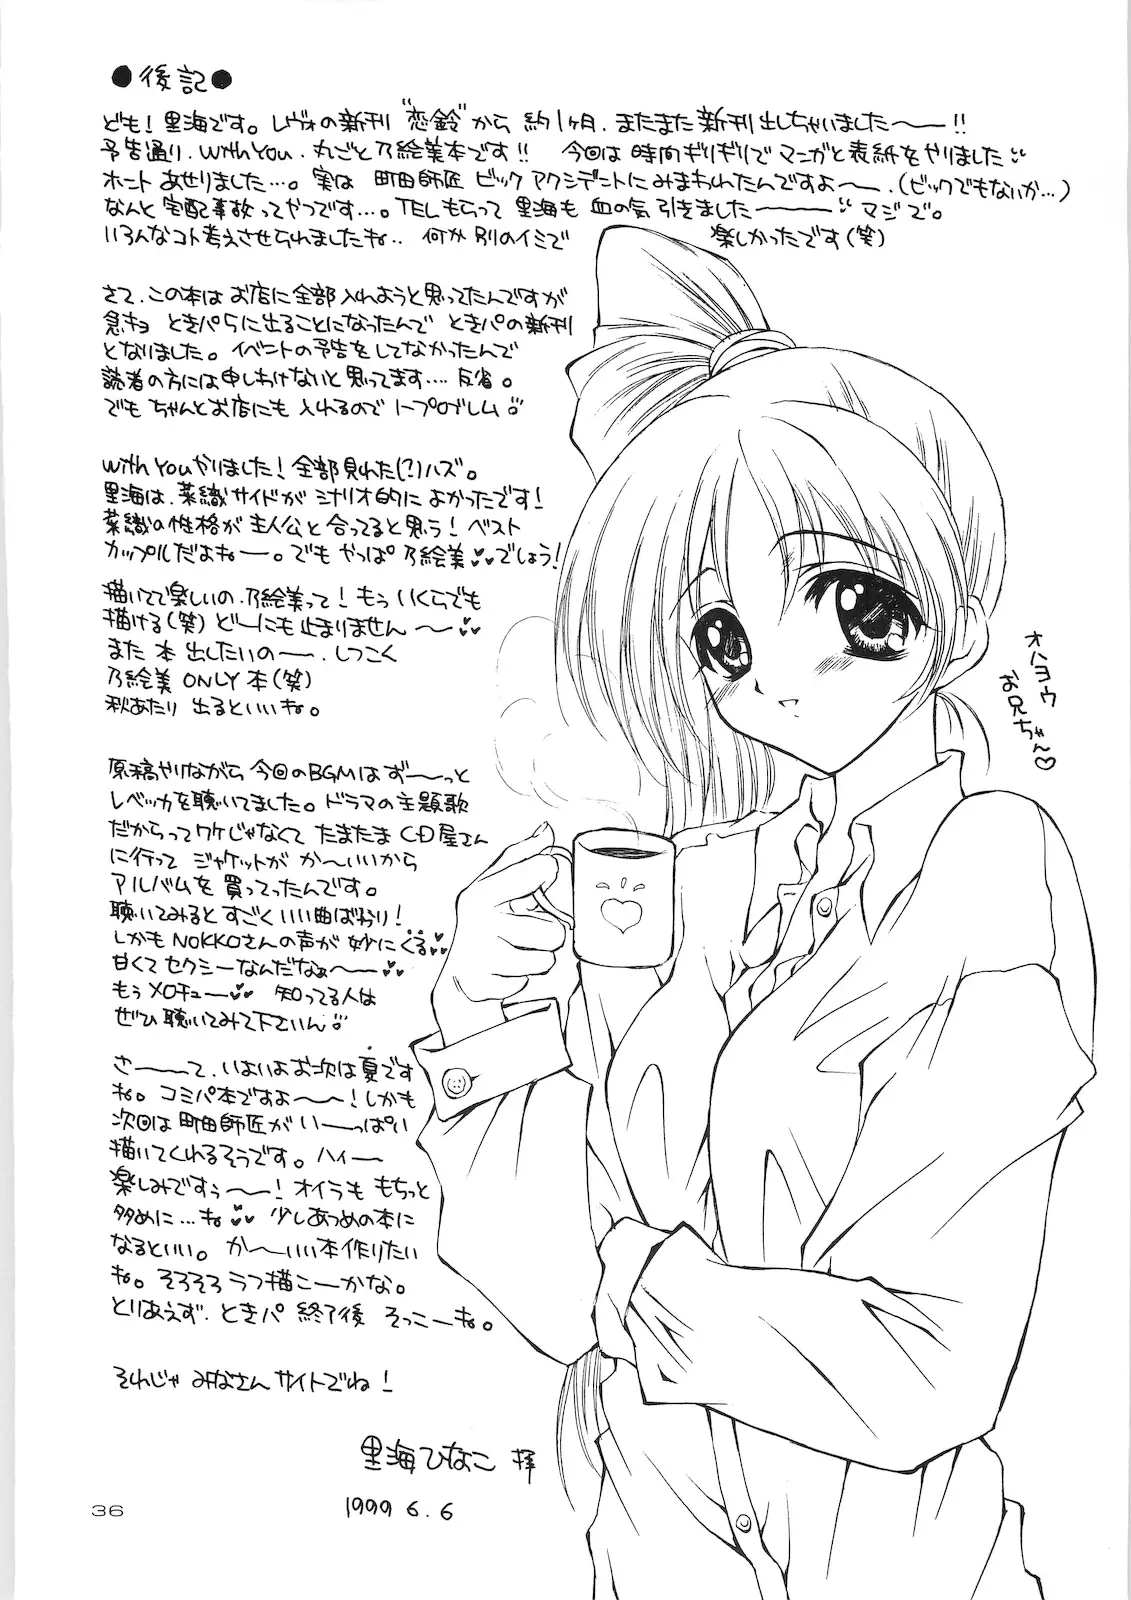 ●後記●
ども!里海です。レヴォの新刊"恋鈴"から約1ヶ月、またまた新刊出しちゃいました〜——!!
予告通り、With You、丸ごと乃絵美本です!! 今回は時間ギリギリでマンガと表紙をやりました
ホントあせりました…。実は町田師匠ビックアクシデントにみまわれたんですよ〜、(ビックでもないか…)
なんと宅配事故ってやつです…。TELもらって里海も血の気引きました〜——マジで。
いろんなコト考えさせられましたね‥何か別のイミで 楽しかったです(笑)
さて、この本はお店に全部入れようと思ってたんですが
急キョときパ5に出ることになったんでときパの新刊
となりました。イベントの予告をしてなかったんで
読者の方には申しわけないと思ってます‥‥反省。
でもちゃんとお店にも入れるのでノープロブレム
With Youやりました!全部見れた(?)ハズ。
里海は、菜織サイドがシナリオ的によかったです!
菜織の性格が主人公と合ってると思う!ベスト
カップルだよねー。でもやっぱ乃絵美♥♥でしょう!
描いてて楽しいの、乃絵美って!もういくらでも
描ける(笑)どーにも止まりません〜—♥♥
また本出したいの〜—、しつこく
乃絵美ONLY本(笑)
秋あたり出るといいね。
原稿やりながら今回のBGMはず〜—っと
レベッカを聴いてました。ドラマの主題歌
だからってワケじゃなくてたまたまCD屋さん
に行ってジャケットがか〜いいから
アルバムを買ってったんです。
聴いてみるとすごくいい曲ばかり!
しかもNOKKOさんの声が妙にくる♥♥
甘くてセクシーなんだなぁ〜—♥♥
もぅメロチュ—♥♥ 知ってる人は
ぜひ聴いてみて下さいん
さ〜——て、いよいよお次は夏です
ね。コミパ本ですよ〜—!しかも
次回は町田師匠がい〜—っぱい
描いてくれるそうです。ハィ—
楽しみですぅ〜—!オイラももちっと
多めに…ね♥♥ 少しあつめの本に
なるといい。か〜いい本作りたい
ね。そろそろラフ描こーかな。
とりあえず、ときパ終了後そっこーね。
それじゃみなさんサイトでね!
里海ひなこ 拝
1999 6.6
オハヨウ
お兄ちゃん♡
36